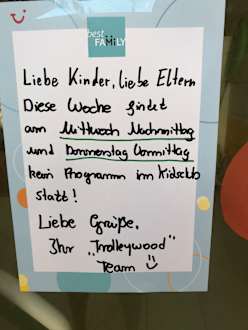 best
FAMILY
Liebe Kinder, liebe Eltern
Diese Woche findet
am Mittwoch Nachmittag
und Donnerstag Vormittag
kein Programm im Kidsclub
statt!
Liebe Grüße,
Ihr "Trolleywood"
Team